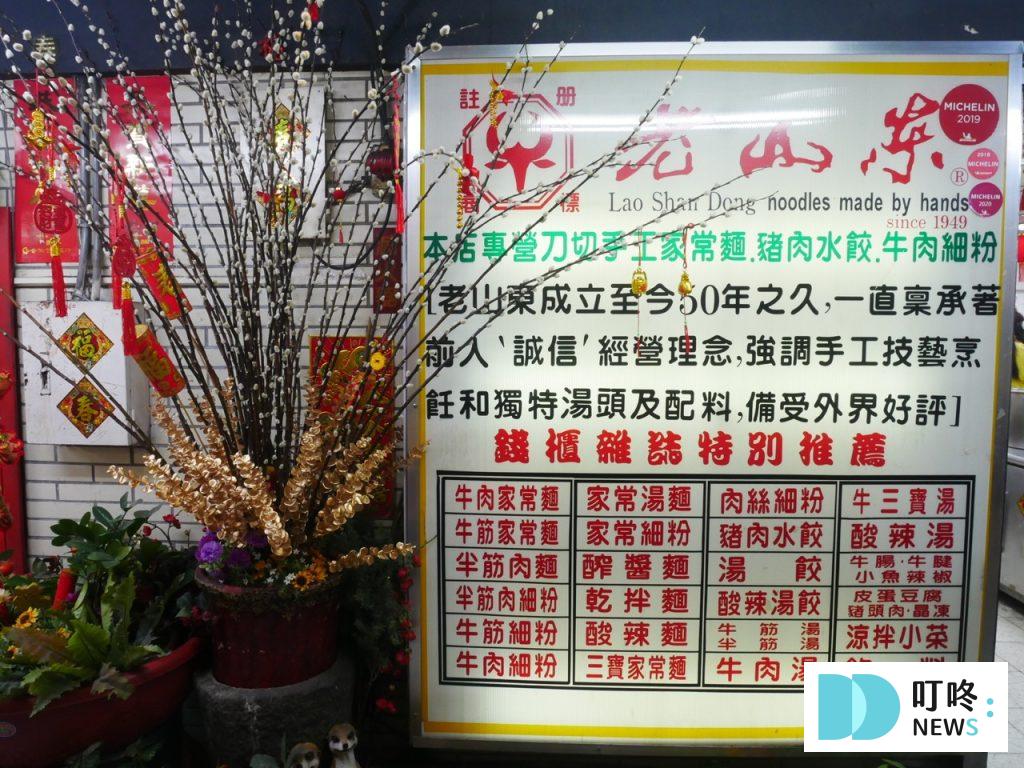 註册
老山東
MICHELIN
2019
2018
MICHELIN
®
Lao Shan Dong noodles made by hands
MICHELIN
2020
商標
since 1949
本店專營刀切手工家常麵.豬肉水餃.牛肉細粉
[老山東成立至今50年之久,一直稟承著
前人‵誠信′經營理念,強調手工技藝烹
飪和獨特湯頭及配料,備受外界好評]
錢櫃雜誌特別推薦
牛肉家常麵 家常湯麵 肉絲細粉 牛三寶湯
牛筋家常麵 家常細粉 豬肉水餃 酸辣湯
半筋肉麵 醡醬麵 湯餃 牛腸·牛腱
小魚辣椒
半筋肉細粉 乾拌麵 酸辣湯餃 皮蛋豆腐
豬頭肉·晶凍
牛筋細粉 酸辣麵 牛筋湯
半筋湯 涼拌小菜
牛肉細粉 三寶家常麵 牛肉湯
福
春
叮咚:
NEWS